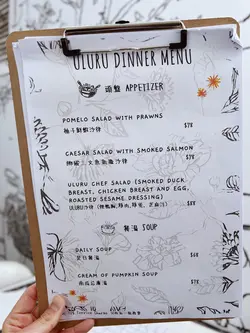 ULURU DINNER MENU
頭盤 APPETIZER
POMELO SALAD WITH PRAWNS
柚子鮮蝦沙律 $78
CAESAR SALAD WITH SMOKED SALMON
$78
ULURU CHEF SALAD (SMOKED DUCK
BREAST, CHICKEN BREAST AND EGG,
ROASTED SESAME DRESSING)
$88
餐湯 SOUP
DAILY SOUP
$68
CREAM OF PUMPKIN SOUP
南瓜忌廉湯 $78